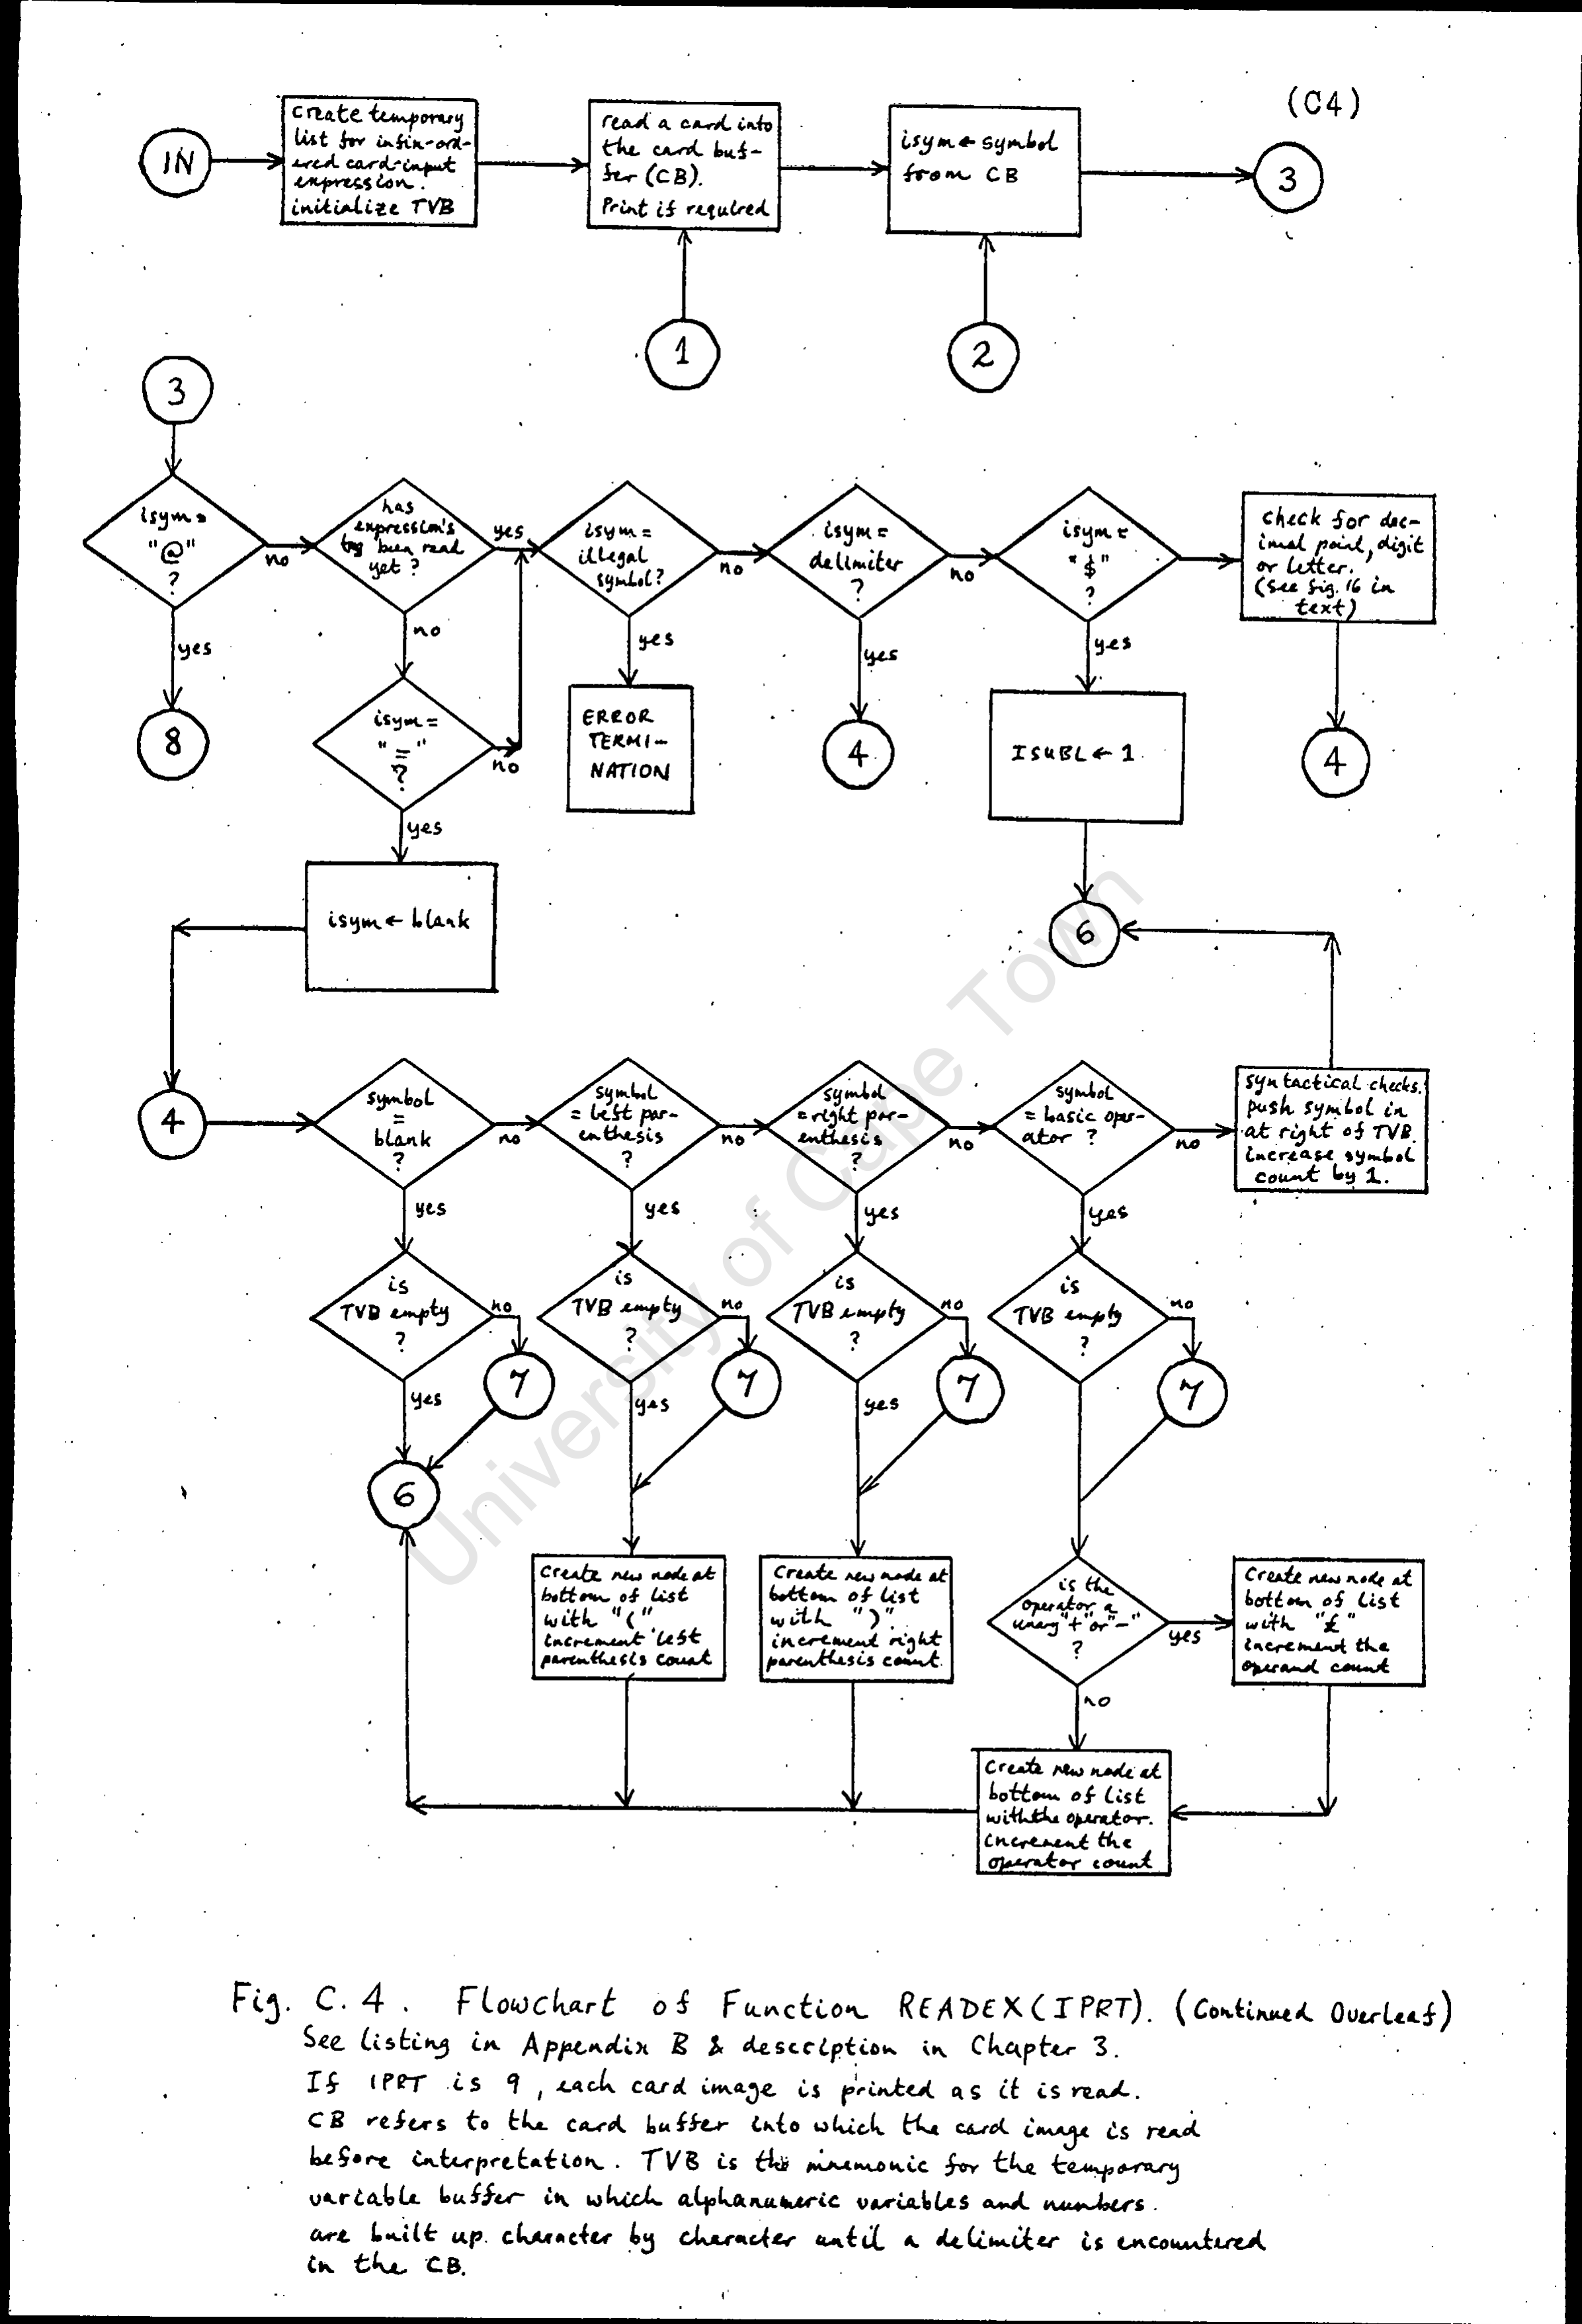 (C4)
IN
create temporary
list for infix-ord-
ered card-input
expression.
initialize TVB
read a card into
the card buf-
fer (CB).
Print if required
isym ← symbol
from CB
3
1
2
3
isym =
"@"
?
no
yes
8
has
expression's
been read
yet ?
yes
no
isym =
" = "
?
no
yes
isym ← blank
isym =
illegal
symbol?
no
yes
ERROR
TERMI-
NATION
isym =
delimiter
?
no
yes
4
isym =
"$"
?
yes
ISUBL ← 1
6
check for dec-
imal point, digit
or letter.
(see fig. 16 in
text)
4
4
symbol
=
blank
?
no
yes
symbol
= left par-
enthesis
?
no
yes
symbol
= right par-
enthesis
?
no
yes
symbol
= basic oper-
ator ?
no
yes
syntactical checks.
push symbol in
at right of TVB.
increase symbol
count by 1.
is
TVB empty
?
no
yes
7
6
is
TVB empty
?
no
yes
7
is
TVB empty
?
no
yes
7
is
TVB empty
?
no
7
Create new node at
bottom of list
with "("
increment left
parenthesis count
Create new node at
bottom of list
with ")"
increment right
parenthesis count.
is the
operator a
unary "+" or "-"
?
yes
no
Create new node at
bottom of list
with "£"
increment the
operand count
Create new node at
bottom of list
with the operator.
increment the
operator count
Fig. C.4. Flowchart of Function READEX(IPRT). (Continued Overleaf)
See listing in Appendix B & description in Chapter 3.
If IPRT is 9, each card image is printed as it is read.
CB refers to the card buffer into which the card image is read
before interpretation. TVB is the mnemonic for the temporary
variable buffer in which alphanumeric variables and numbers
are built up character by character until a delimiter is encountered
in the CB.
University of Cape Town